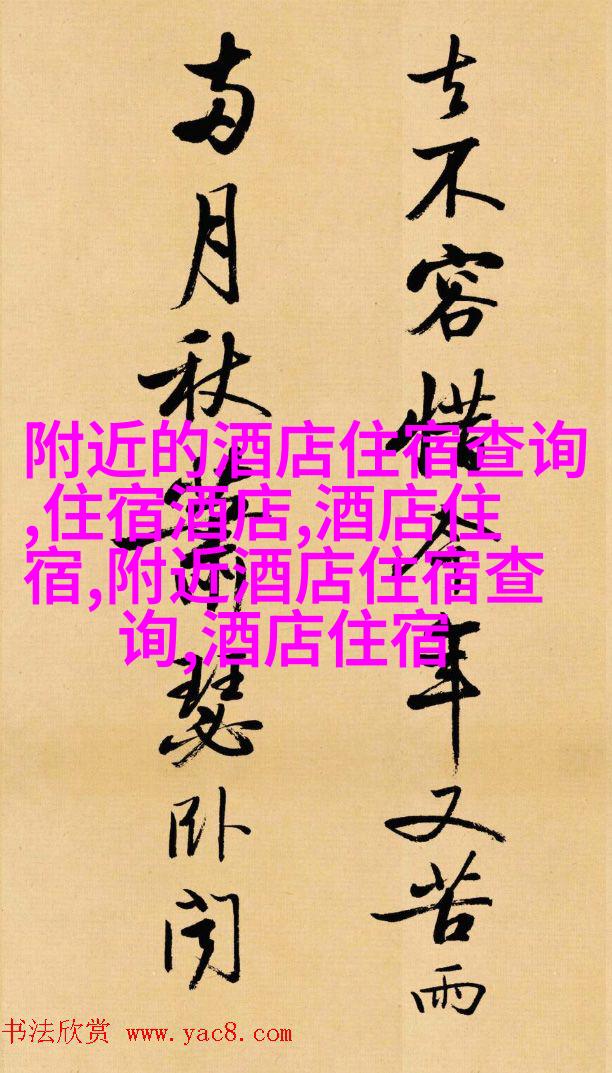 去不容惜今年又苦雨
两月秋蕭瑟卧闻
附近的酒店住宿查询
,住宿酒店,酒店住
宿,附近酒店住宿查
询,酒店住宿
书法欣赏 www.yac8.com